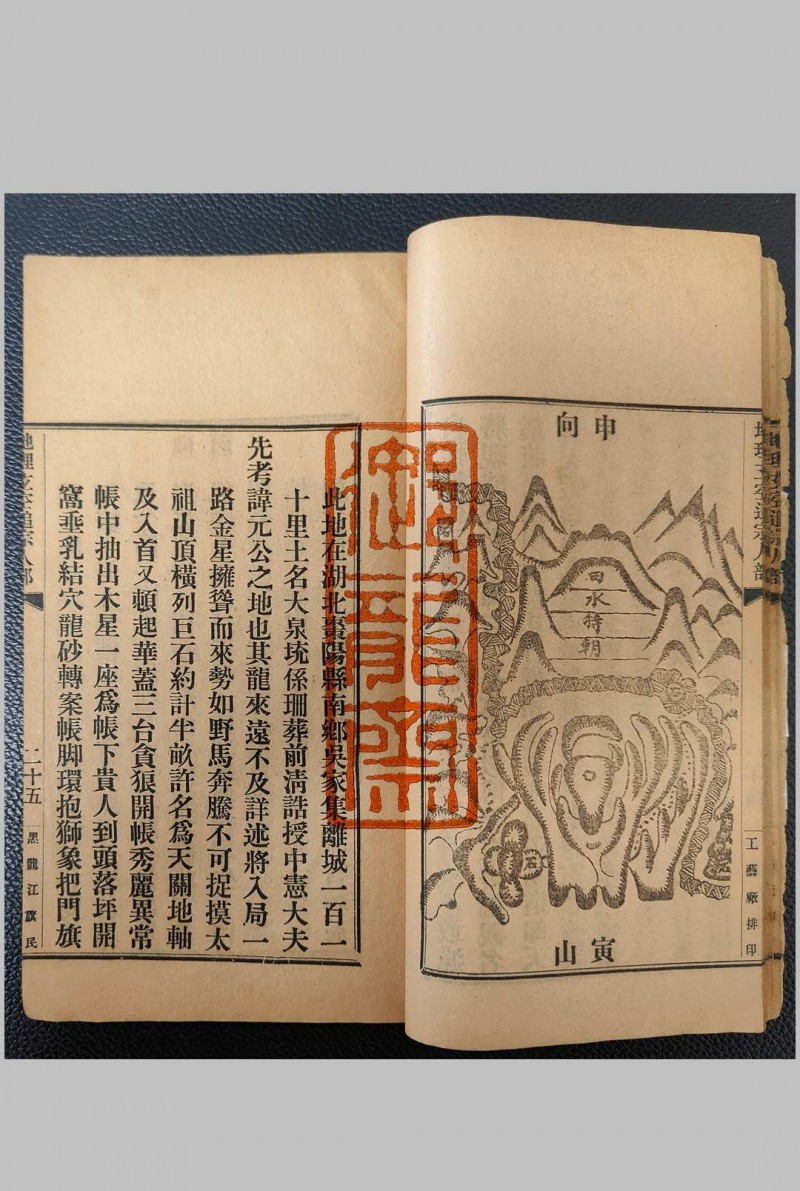 申向
田水特朝
寅山
工藝廠排印
此地在湖北棗陽縣南鄉吳家集離城一百一
十里土名大泉坑係珊葬前清誥授中憲大夫
先考諱元公之地也其龍來遠不及詳述將入局一
路金星擁聳而來勢如野馬奔騰不可捉摸太
祖山頂橫列巨石約計半畝許名爲天關地軸
及入首又頓起華蓋三台貪狼開帳秀麗異常
帳中抽出木星一座爲帳下貴人到頭落坪開
窩垂乳結穴龍砂轉案帳脚環抱獅象把門旗
二十五
黑龍江旗民